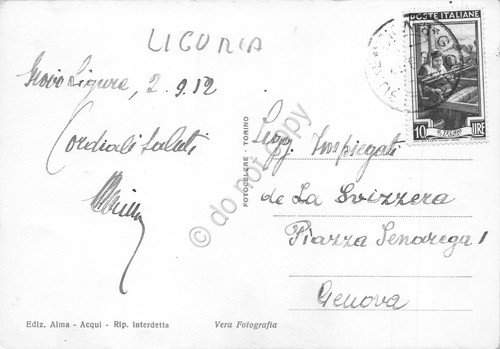 LIGURIA
Novi Ligure, 2.9.52
Cordiali saluti
Sigg. Impiegati
de La Svizzera
Piazza Senarega 1
Genova
POSTE ITALIANE
10 LIRE
FOTOCELERE - TORINO
Ediz. Alma - Acqui - Rip. interdetta
Vera Fotografia
© do not copy